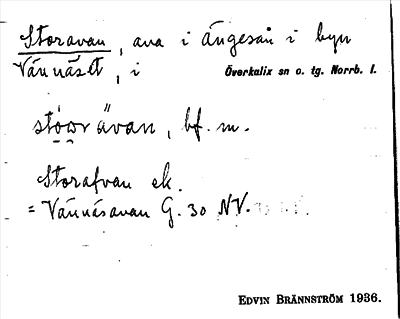 Storavan, ava i Ängesån i byn
Vännäset, i Överkalix sn o. tg. Norrb. l.
stówrävan, bf. m.
Storafvan ek.
= Vännäsavan G. 30 NV.
EDVIN BRÄNNSTRÖM 1936.